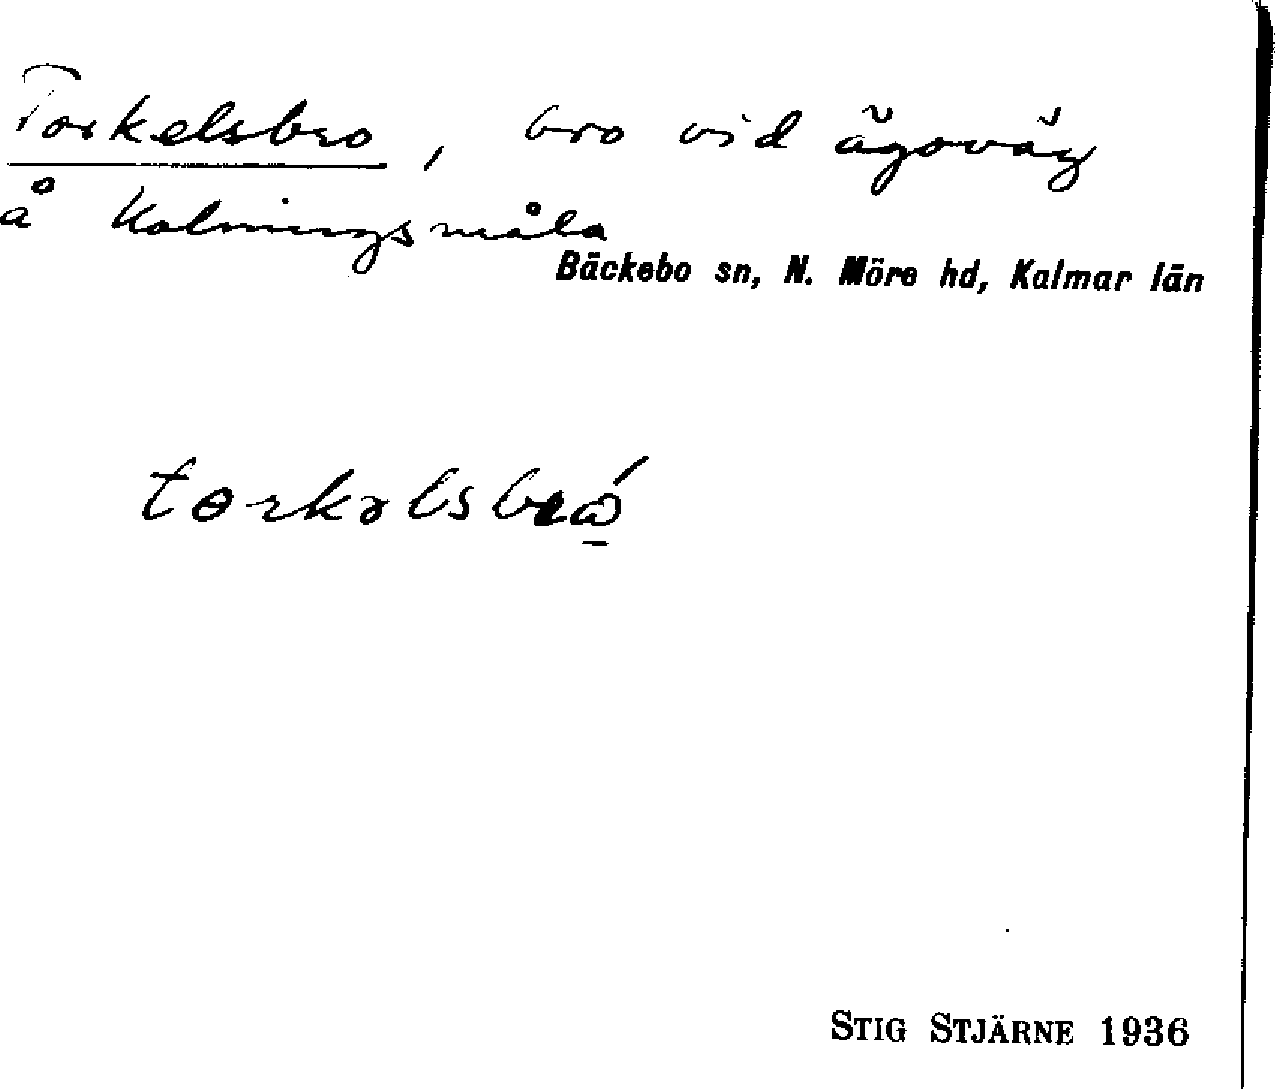 Torkelsbro, bro vid ägoväg
å Kolningsmåla
Bäckebo sn, N. Möre hd, Kalmar län
STIG STJÄRNE 1936